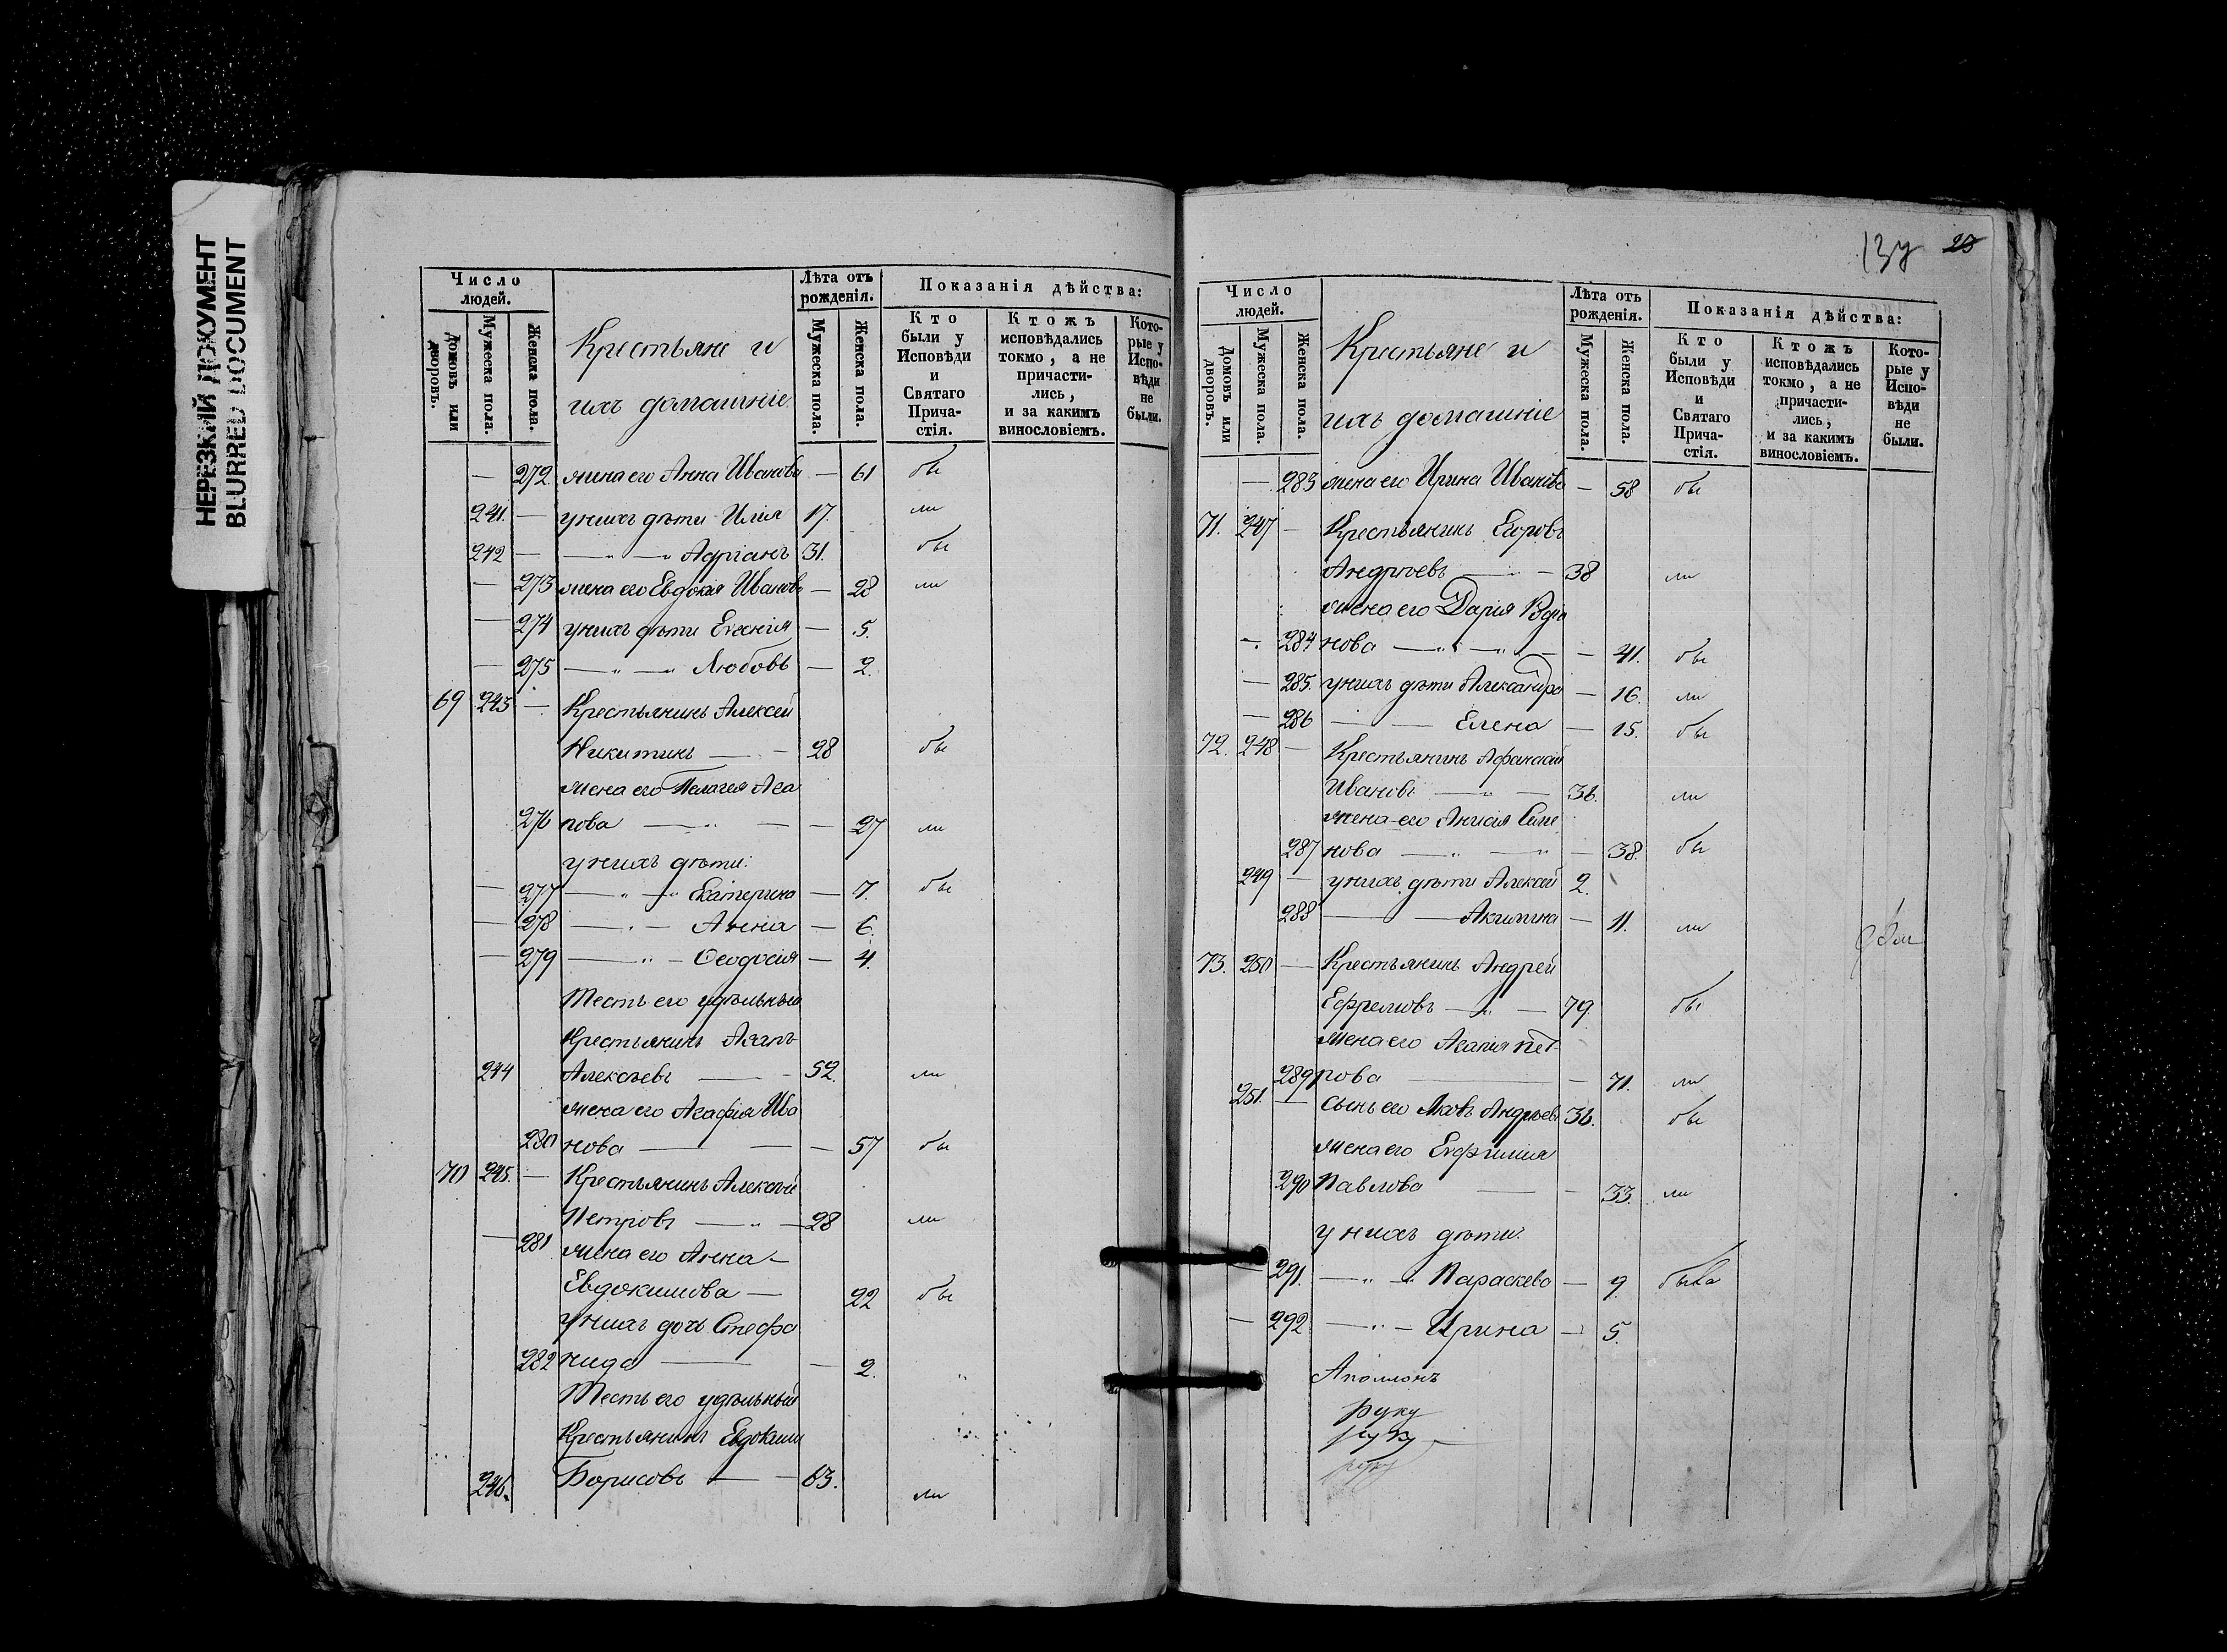 НЕРЕЗКИЙ ДОКУМЕНТ
BLURRED DOCUMENT
Число людей.
Домовъ или дворовъ.
Мужеска пола.
Женска пола.
Крестьяне и
ихъ домашніе
Лѣта отъ рожденія.
Мужеска пола.
Женска пола.
Показанія дѣйства:
Кто были у Исповѣди и Святаго Прича- стія.
Ктожъ исповѣдались токмо, а не причасти- лись, и за какимъ винословіемъ.
Кото- рые у Испо- вѣди не были.
— 272 жена его Анна Иванова — 61 бы
241. — у нихъ дѣти Илія 17. ли
242 — — „ — „ Адріанъ 31. бы
— 273 жена его Евдокія Иванова — 28 ли
— 274 у нихъ дѣти Евгенія — 5.
— 275 — „ — „ Любовь — 2.
69 243 — Крестьянинъ Алексей
Никитинъ — — 28 бы
жена его Пелагея Ага
276 пова — „ — — 27 ли
у нихъ дѣти:
— 277 — „ — „ Екатерина — 7. бы
— 278 — „ — Анна — 6.
— 279 — „ — Ѳеодосія — 4.
Тесть его удѣльный
Крестьянинъ Агапъ
244 Алексѣевъ — — 52. ли
жена его Агафія Ива
280 нова — — — 57 бы
70 245. — Крестьянинъ Алексѣй
Петровъ — „ — 28 ли
— 281 жена его Анна —
Евдокимова — 22 бы
у нихъ дочь Стефа
282 нида — — 2.
Тесть его удѣльный
Крестьянинъ Евдокимъ
246. Борисовъ — — 63. ли
137 23
Число людей.
Домовъ или дворовъ.
Мужеска пола.
Женска пола.
Крестьяне и
ихъ домашніе
Лѣта отъ рожденія.
Мужеска пола.
Женска пола.
Показанія дѣйства:
Кто были у Исповѣди и Святаго Прича- стія.
Ктожъ исповѣдались токмо, а не причасти- лись, и за какимъ винословіемъ.
Кото- рые у Испо- вѣди не были.
— 283 жена его Ирина Иванова — 58 бы
71. 247 — Крестьянинъ Егоровъ
Андреевъ — „ — 38 ли
жена его Дарія
— 284 нова — „ — „ — — 41. бы
— 285. у нихъ дѣти Александра — 16. ли
— 286 — — Елена — 15. бы
72. 248 — Крестьянинъ Афанасій
Ивановъ — „ — 36. ли
жена его Анисія Симе
287 нова — „ — „ — 38. бы
249 — у нихъ дѣти Алексей 2.
288 — — Акилина — 11. ли
73. 250 — Крестьянинъ Андрей
Ефремовъ — „ — 79. бы
жена его Агапия Пет-
289 рова — — 71. ли
251. — сынъ его Яковъ Андреевъ 36. бы
жена его Евфимия
290 Павлова — — 33. ли
у нихъ дѣти:
— 291. — „ — „ Параскева — 9. была
— 292 — „ — Ирина — 5.
Аполлонъ
руку
руку